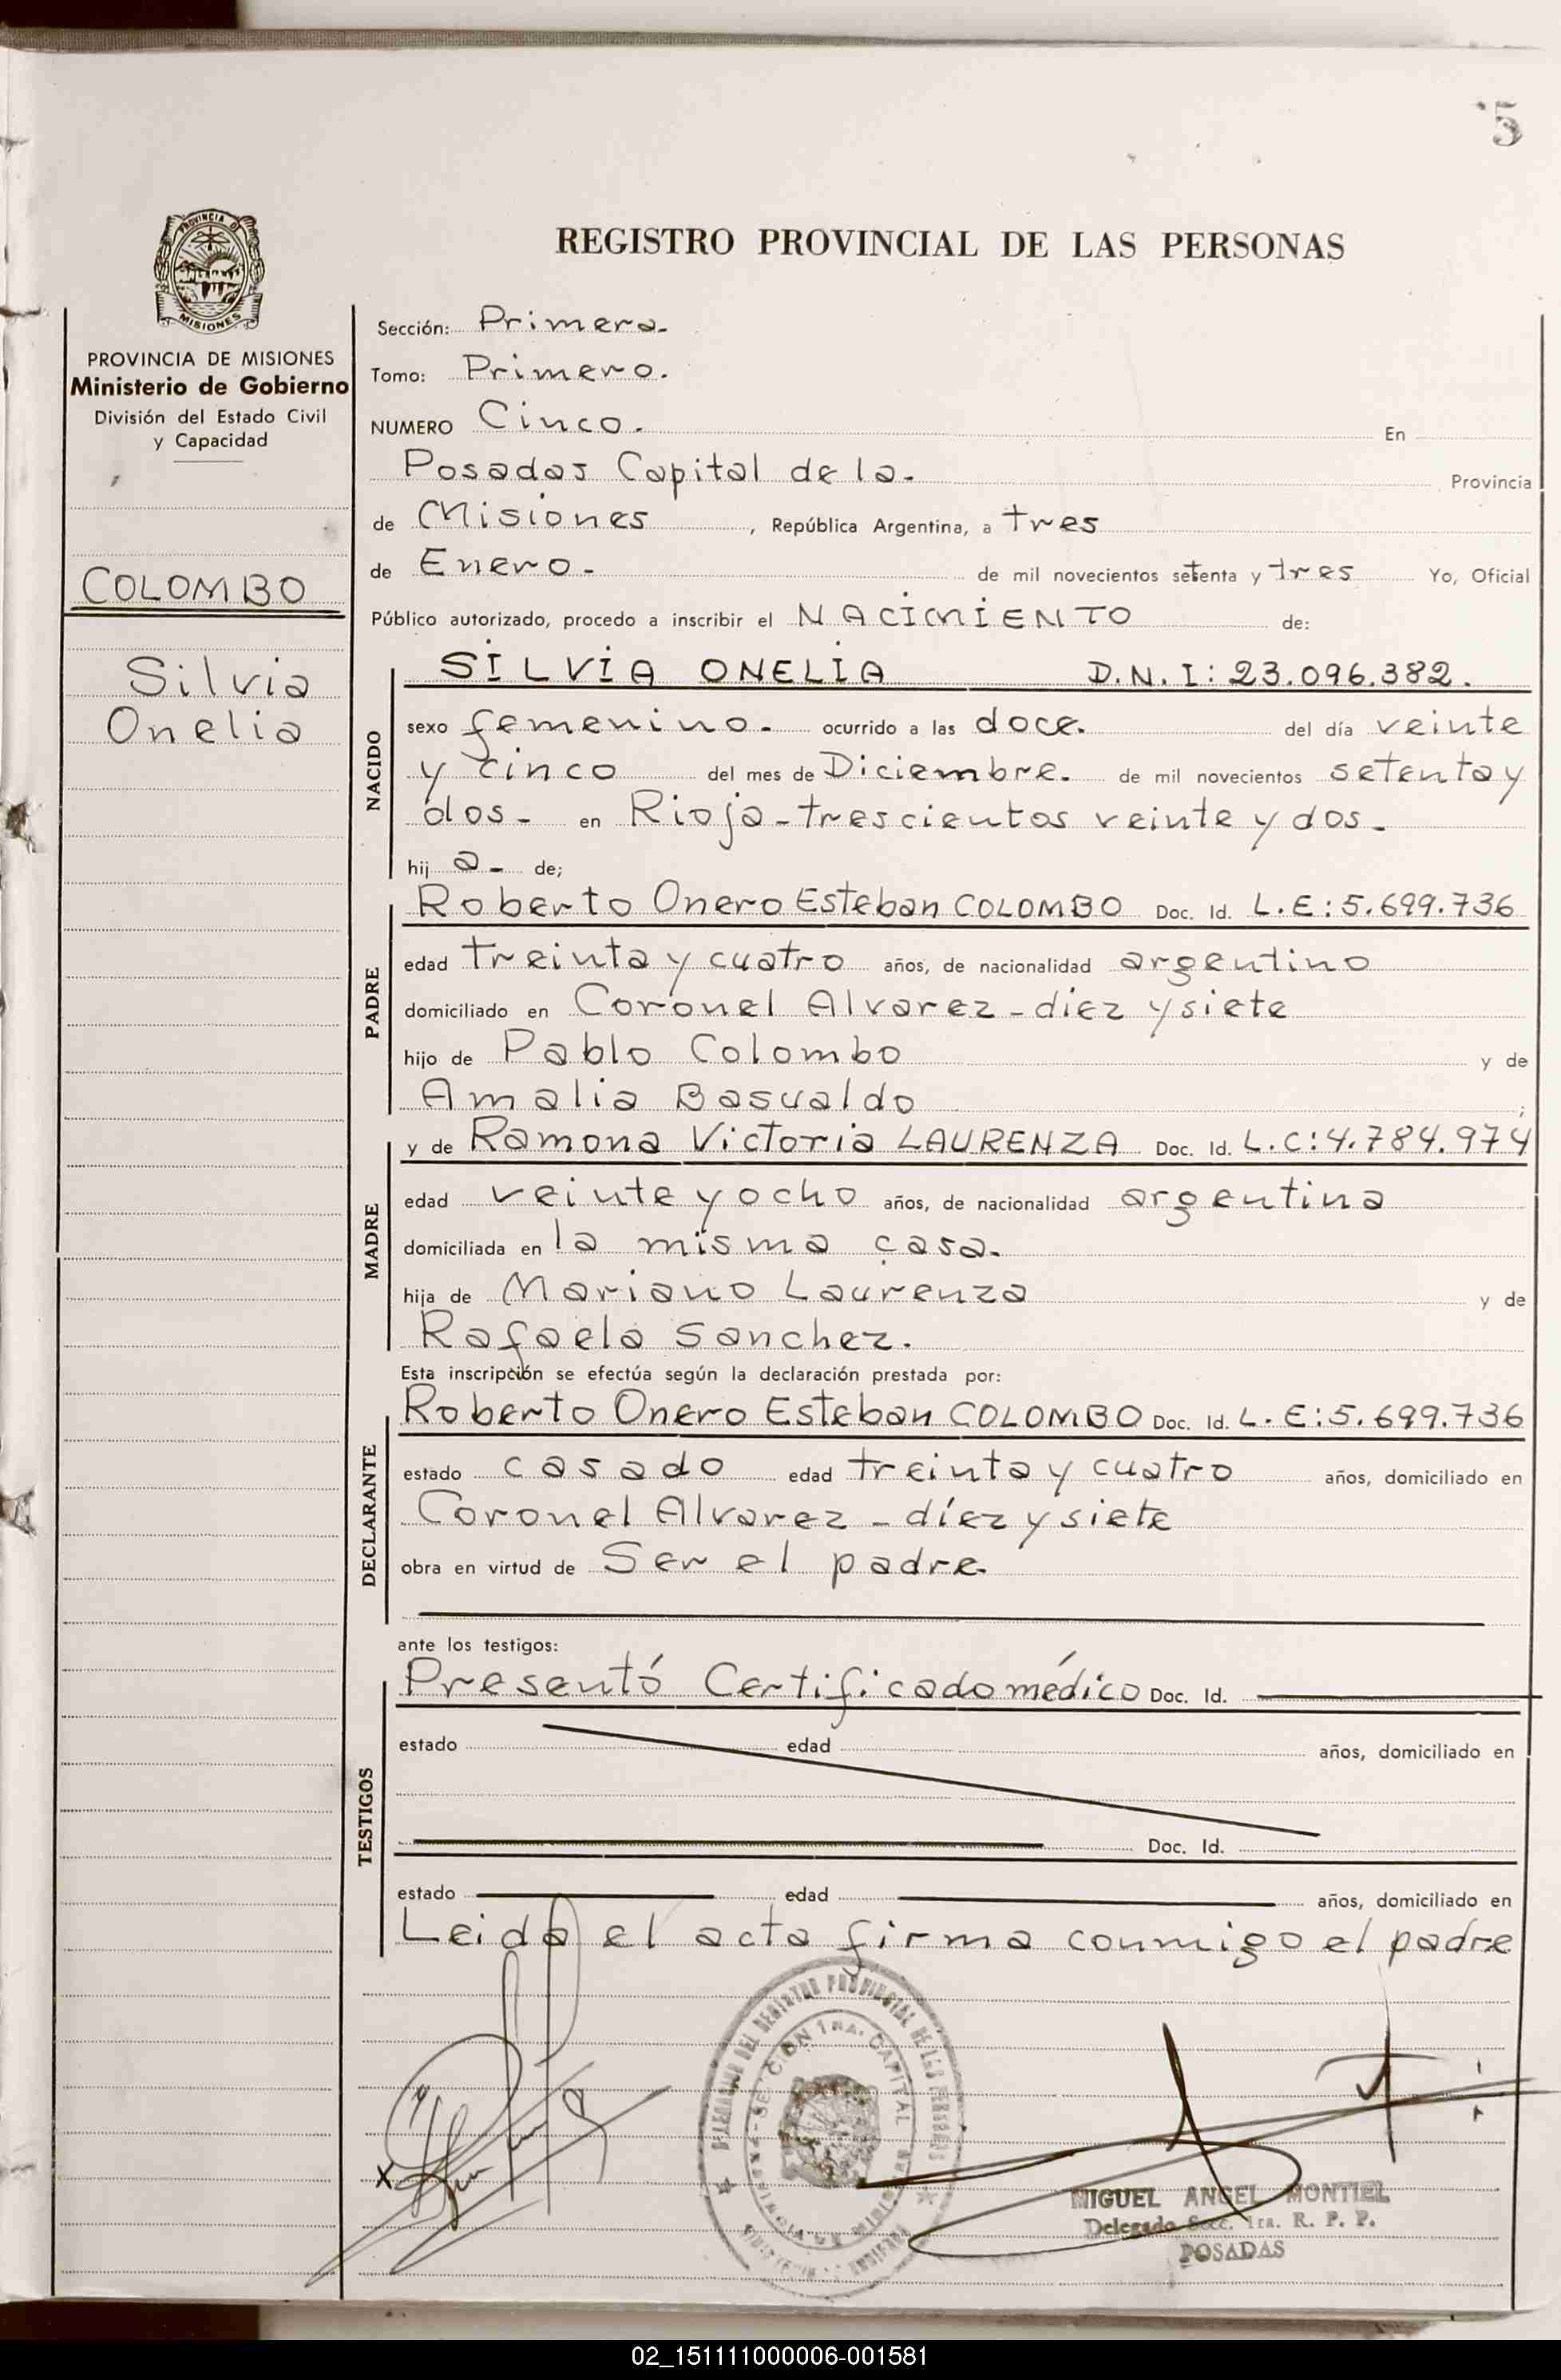 5
REGISTRO PROVINCIAL DE LAS PERSONAS
PROVINCIA DE MISIONES
Ministerio de Gobierno
División del Estado Civil
y Capacidad
COLOMBO
Silvia
Onelia
Sección: Primera.
Tomo: Primero.
NUMERO Cinco. En
Posadas Capital de la. Provincia
de Misiones, República Argentina, a tres
de Enero. de mil novecientos setenta y tres Yo, Oficial
Público autorizado, procedo a inscribir el NACIMIENTO de:
NACIDO
SILVIA ONELIA D.N.I: 23.096.382.
sexo femenino. ocurrido a las doce. del día veinte
y cinco del mes de Diciembre. de mil novecientos setenta y
dos- en Rioja-trescientos veinte y dos.
hij a- de;
PADRE
Roberto Onero Esteban COLOMBO Doc. Id. L.E:5.699.736
edad treinta y cuatro años, de nacionalidad argentino
domiciliado en Coronel Alvarez-diez y siete
hijo de Pablo Colombo y de
Amalia Basualdo ;
MADRE
y de Ramona Victoria LAURENZA Doc. Id. L.C:4.784.974
edad veinte y ocho años, de nacionalidad argentina
domiciliada en la misma casa.
hija de Mariano Laurenza y de
Rafaela Sanchez.
Esta inscripción se efectúa según la declaración prestada por:
DECLARANTE
Roberto Onero Esteban COLOMBO Doc. Id. L.E:5.699.736
estado casado edad treinta y cuatro años, domiciliado en
Coronel Alvarez-díez y siete
obra en virtud de Ser el padre.
ante los testigos:
TESTIGOS
Presentó Certificado médico Doc. Id.
estado edad años, domiciliado en
Doc. Id.
estado edad años, domiciliado en
Leida el acta firma conmigo el padre
DEL REGISTRO PROVINCIAL DE LAS PERSONAS
SECCION 1RA. CAPITAL
MIGUEL ANGEL MONTIEL
Delegado Secc. 1ra. R. P. P.
POSADAS
02_151111000006-001581